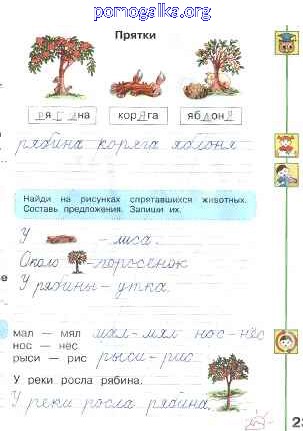 pomogalka.org
Прятки
рябина коряга яблоня
рябина коряга яблоня
Найди на рисунках спрятавшихся животных.
Составь предложения. Запиши их.
У - лиса.
Около - поросёнок
У рябины - утка.
мал — мял мал-мял нос-нёс
нос — нёс
рыси — рис рыси-рис
У реки росла рябина.
У реки росла рябина.